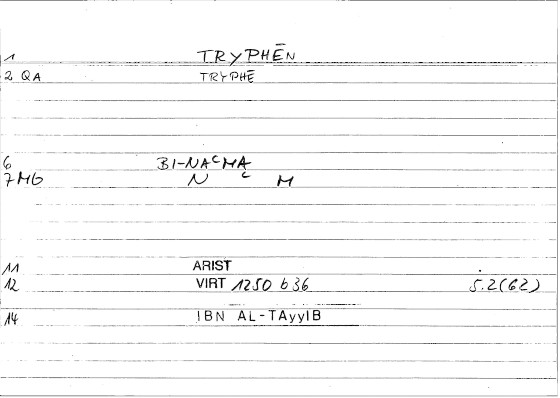 1 TRYPHĒN
2 QA TRYPHĒ
6 BI-NAᶜMA
7 MG N ᶜ M
11 ARIST
12 VIRT 1250 b 36 5.2(62)
14 IBN AL-TAyyIB